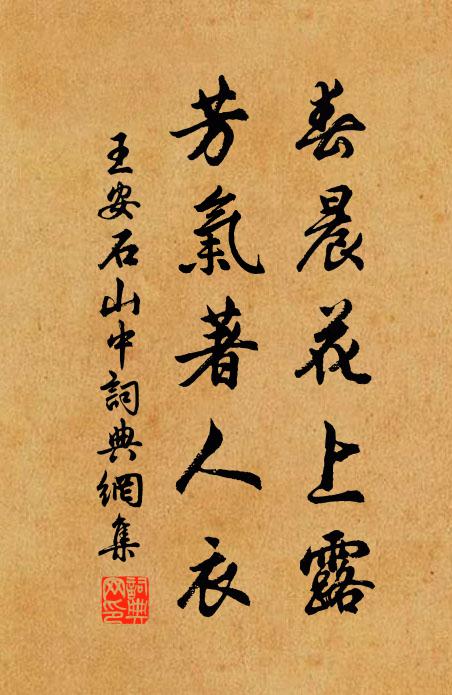 春晨花上露
芳氣著人衣
王安石山中詞典網集
詞典网印